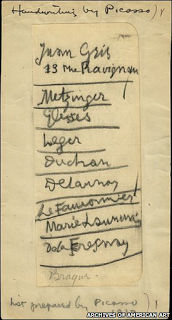 Handwriting by Picasso) !
Juan Gris
13 rue Ravignan
Metzinger
Gleizes
Leger
Duchan
Delaunay
Le Fauconnier
Marie Laurencin
De la Fresnay
Braque
List prepared by Picasso) !
ARCHIVES OF AMERICAN ART